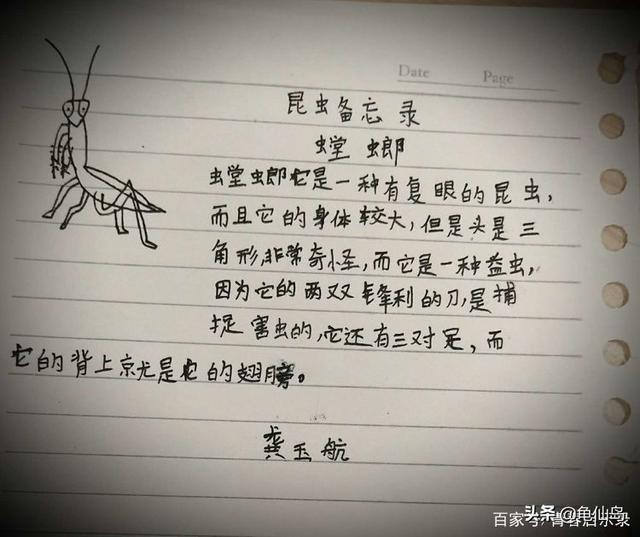 Date Page
昆虫备忘录
螳螂
螳螂它是一种有复眼的昆虫，
而且它的身体较大，但是头是三
角形非常奇怪，而它是一种益虫，
因为它的两双锋利的刀，是捕
捉害虫的，它还有三对足，而
它的背上就是它的翅膀。
龚玉航
头条@龟仙岛